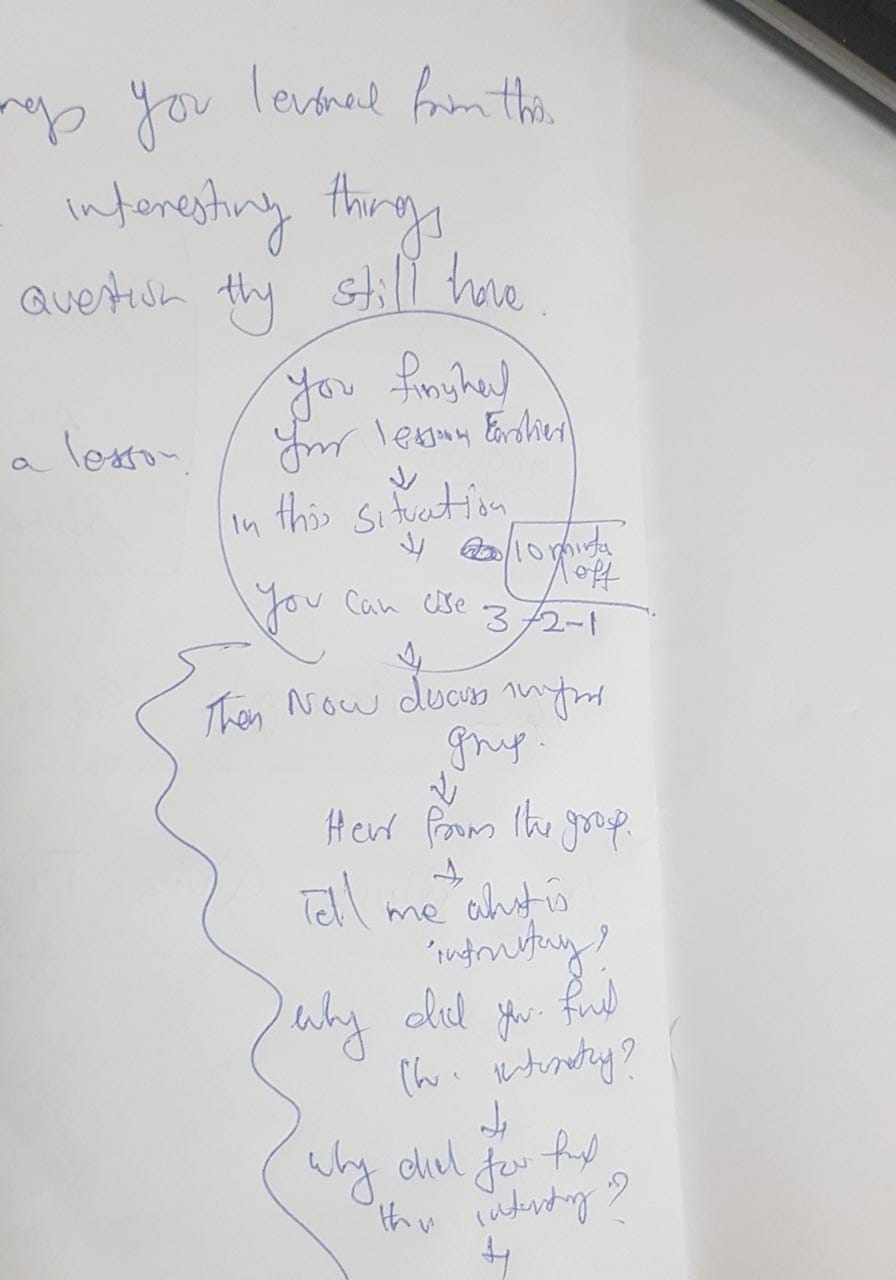 you learned from this
interesting things
question thy still have.
you finished
your lesson Earlier
a lesson.
In this situation
10 minta
off
you can use 3-2-1
Then Now discuss in your
group.
Hear from the group.
Tell me what is
interesting?
why did you find
this interesting?
why did you find
this interesting?